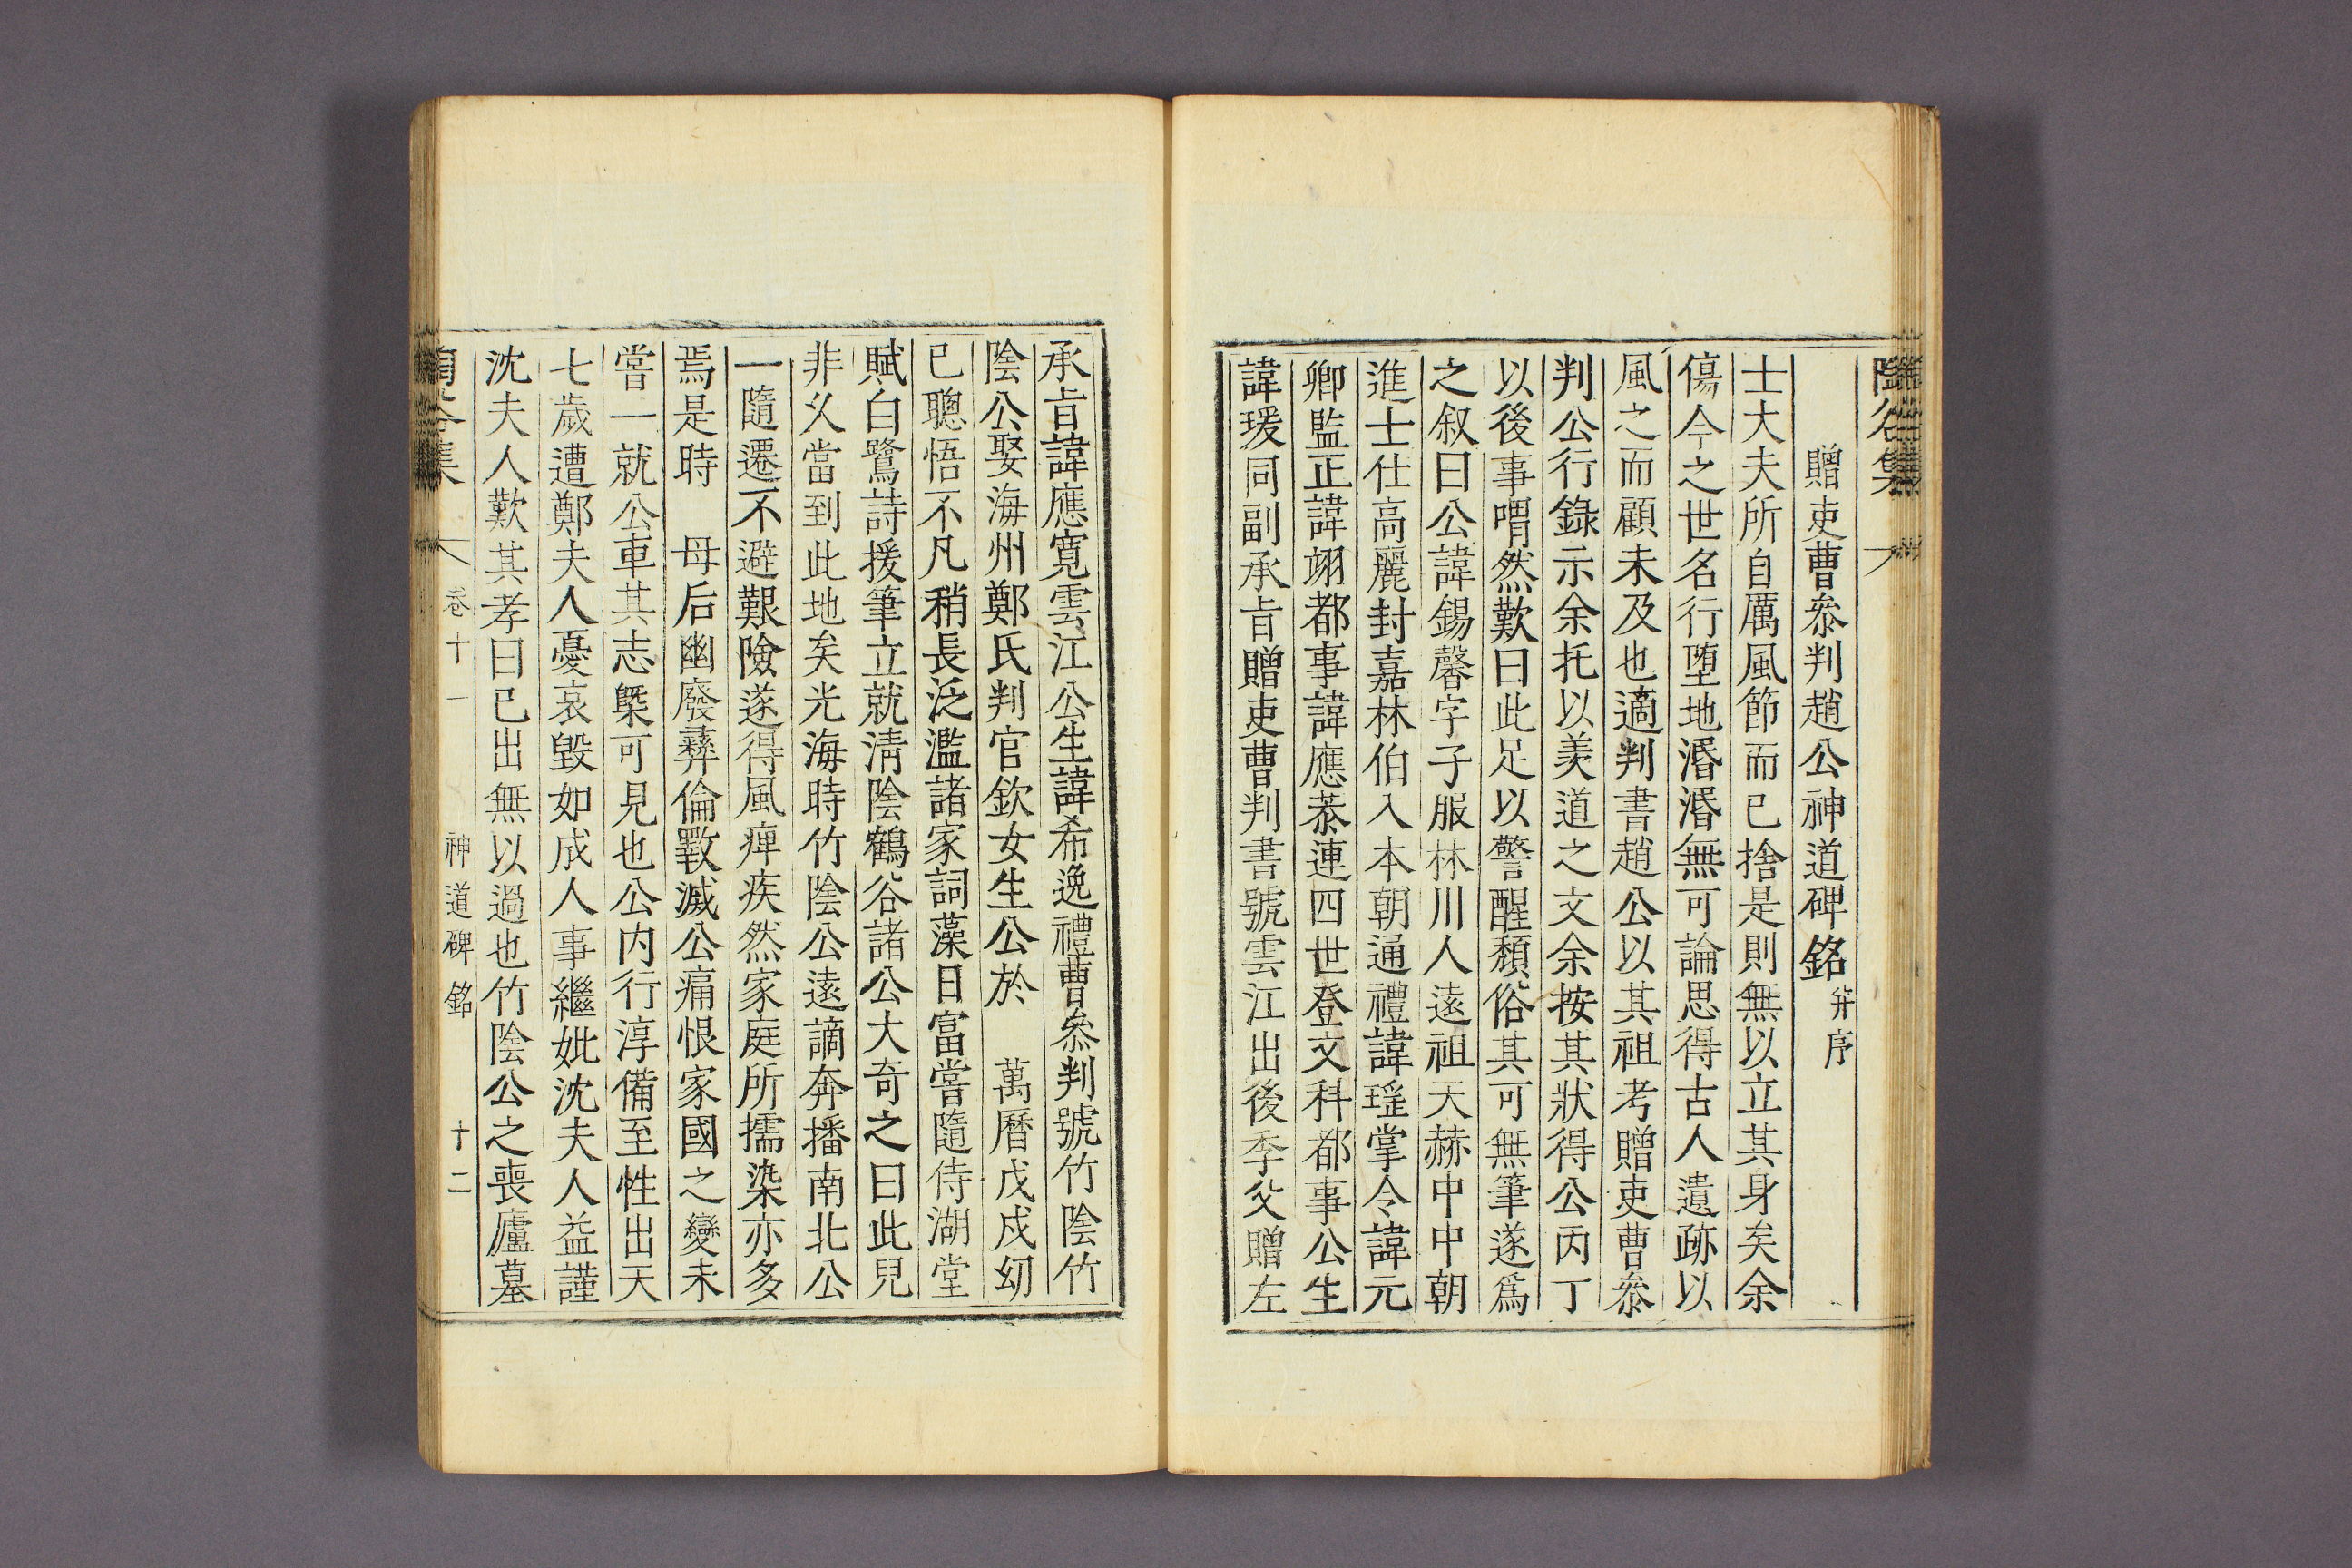 贈吏曹叅判趙公神道碑銘幷序
士大夫所自厲風節而已捨是則無以立其身矣余
傷今之世名行堕地湣湣無可論思得古人遺跡以
風之而顧未及也適判書趙公以其祖考贈吏曹叅
判公行錄示余托以羨道之文余按其狀得公丙丁
以後事喟然歎曰此足以警醒頹俗其可無筆遂爲
之叙曰公諱錫馨字子服林川人遠祖天赫中中朝
進士仕高麗封嘉林伯入本朝通禮諱瑶掌令諱元
卿監正諱翊都事諱應㳟連四世登文科都事公生
諱瑗同副承旨贈吏曹判書號雲江出後季父贈左
承旨諱應寬雲江公生諱希逸禮曹叅判號竹陰竹
陰公娶海州鄭氏判官欽女生公於 萬曆戊戌㓜
已聰悟不凡稍長泛濫諸家詞藻日富嘗隨侍湖堂
賦白鷺詩援筆立就淸陰鶴谷諸公大奇之曰此兒
非乆當到此地矣光海時竹陰公遠謫奔播南北公
一隨遷不避艱險遂得風痺疾然家庭所擩染亦多
焉是時 母后幽廢彛倫斁滅公痛恨家國之變未
嘗一就公車其志槩可見也公内行淳備至性出天
七歲遭鄭夫人憂哀毀如成人事繼妣沈夫人益謹
沈夫人歎其孝曰已出無以過也竹陰公之喪廬墓
卷十一 神道碑銘 十二